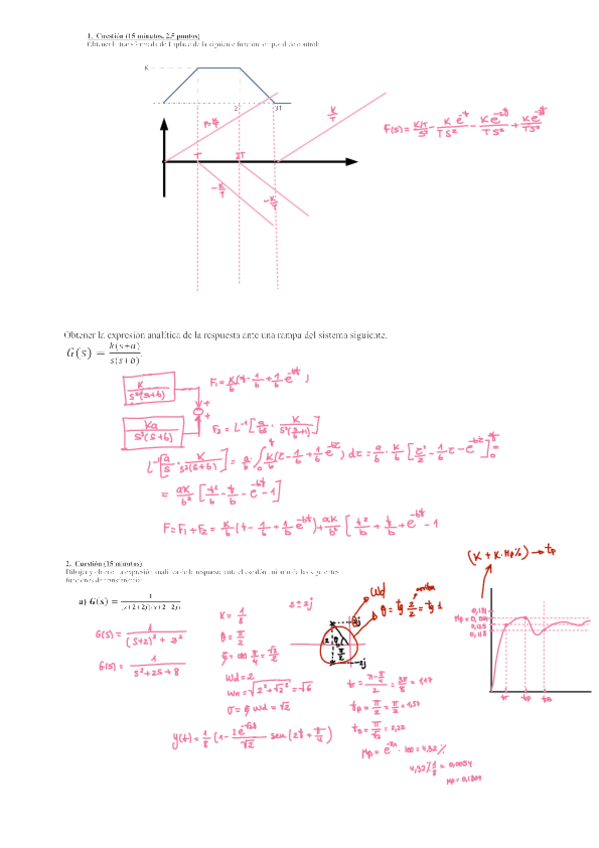 1. Cuestión (15 minutos, 2,5 puntos)
Obtener la transformada de Laplace de la siguiente función temporal de control:
K
2T 3T
P=K/T
K/T
F(s) = K/T/S² - K e^-t/TS² - K e^-2t/TS² + K e^-3t/TS²
T 2T
-K/T
-K/T
Obtener la expresión analítica de la respuesta ante una rampa del sistema siguiente.
G(s) = k(s+a)/s(s+b)
K/S²(S+b)
F₁ = K/b (t - 1/b + 1/b e^-bt)
+
+
Ka/S³(S+b)
F₂ = L⁻¹[a/s · K/S²(S+b)]
L⁻¹[a/s · K/S²(S+b)] = a · ∫₀ᵗ K/b (τ - 1/b + 1/b e^-bτ) dτ = a/b · K/b [τ²/2 - 1/b τ - e^-bτ]
= aK/b² [t²/b - t/b - e^-bt - 1]
F = F₁ + F₂ = K/b (t - 1/b + 1/b e^-bt) + aK/b² [t²/b + t/b + e^-bt - 1
2. Cuestión (15 minutos)
Dibujar y obtener la expresión analítica de la respuesta ante el escalón unitario de las siguientes
funciones de transferencia:
a) G(s) = 1/(s+2+2j)(s+2-2j)
G(s) = 1/(s+2)² + 2²
G(s) = 1/s²+2s+8
K = 1/8
θ = π/2
ξ = cos π/4 = √2/2
Wd = 2
Wn = √2²+√2² = √6
σ = ξ Wd = √2
y(t) = 1/8 (1 - 2e^-√2t/√2 sen (2t + π/4)
2 ± 2j
Wd
2j
-2j
θ = tg 2/2 = tg 1
tr = π - π/4/2 = 3π/8 = 1,17
tp = π/2 = π/2 = 1,57
ts = π/√2 = 2,22
Mp = e · 100 = 4,32%
4,32% 1/8 = 0,0054
Mp = 0,1304
(K + K·Mp%) → tp
0,131
0,125
tr tp ts